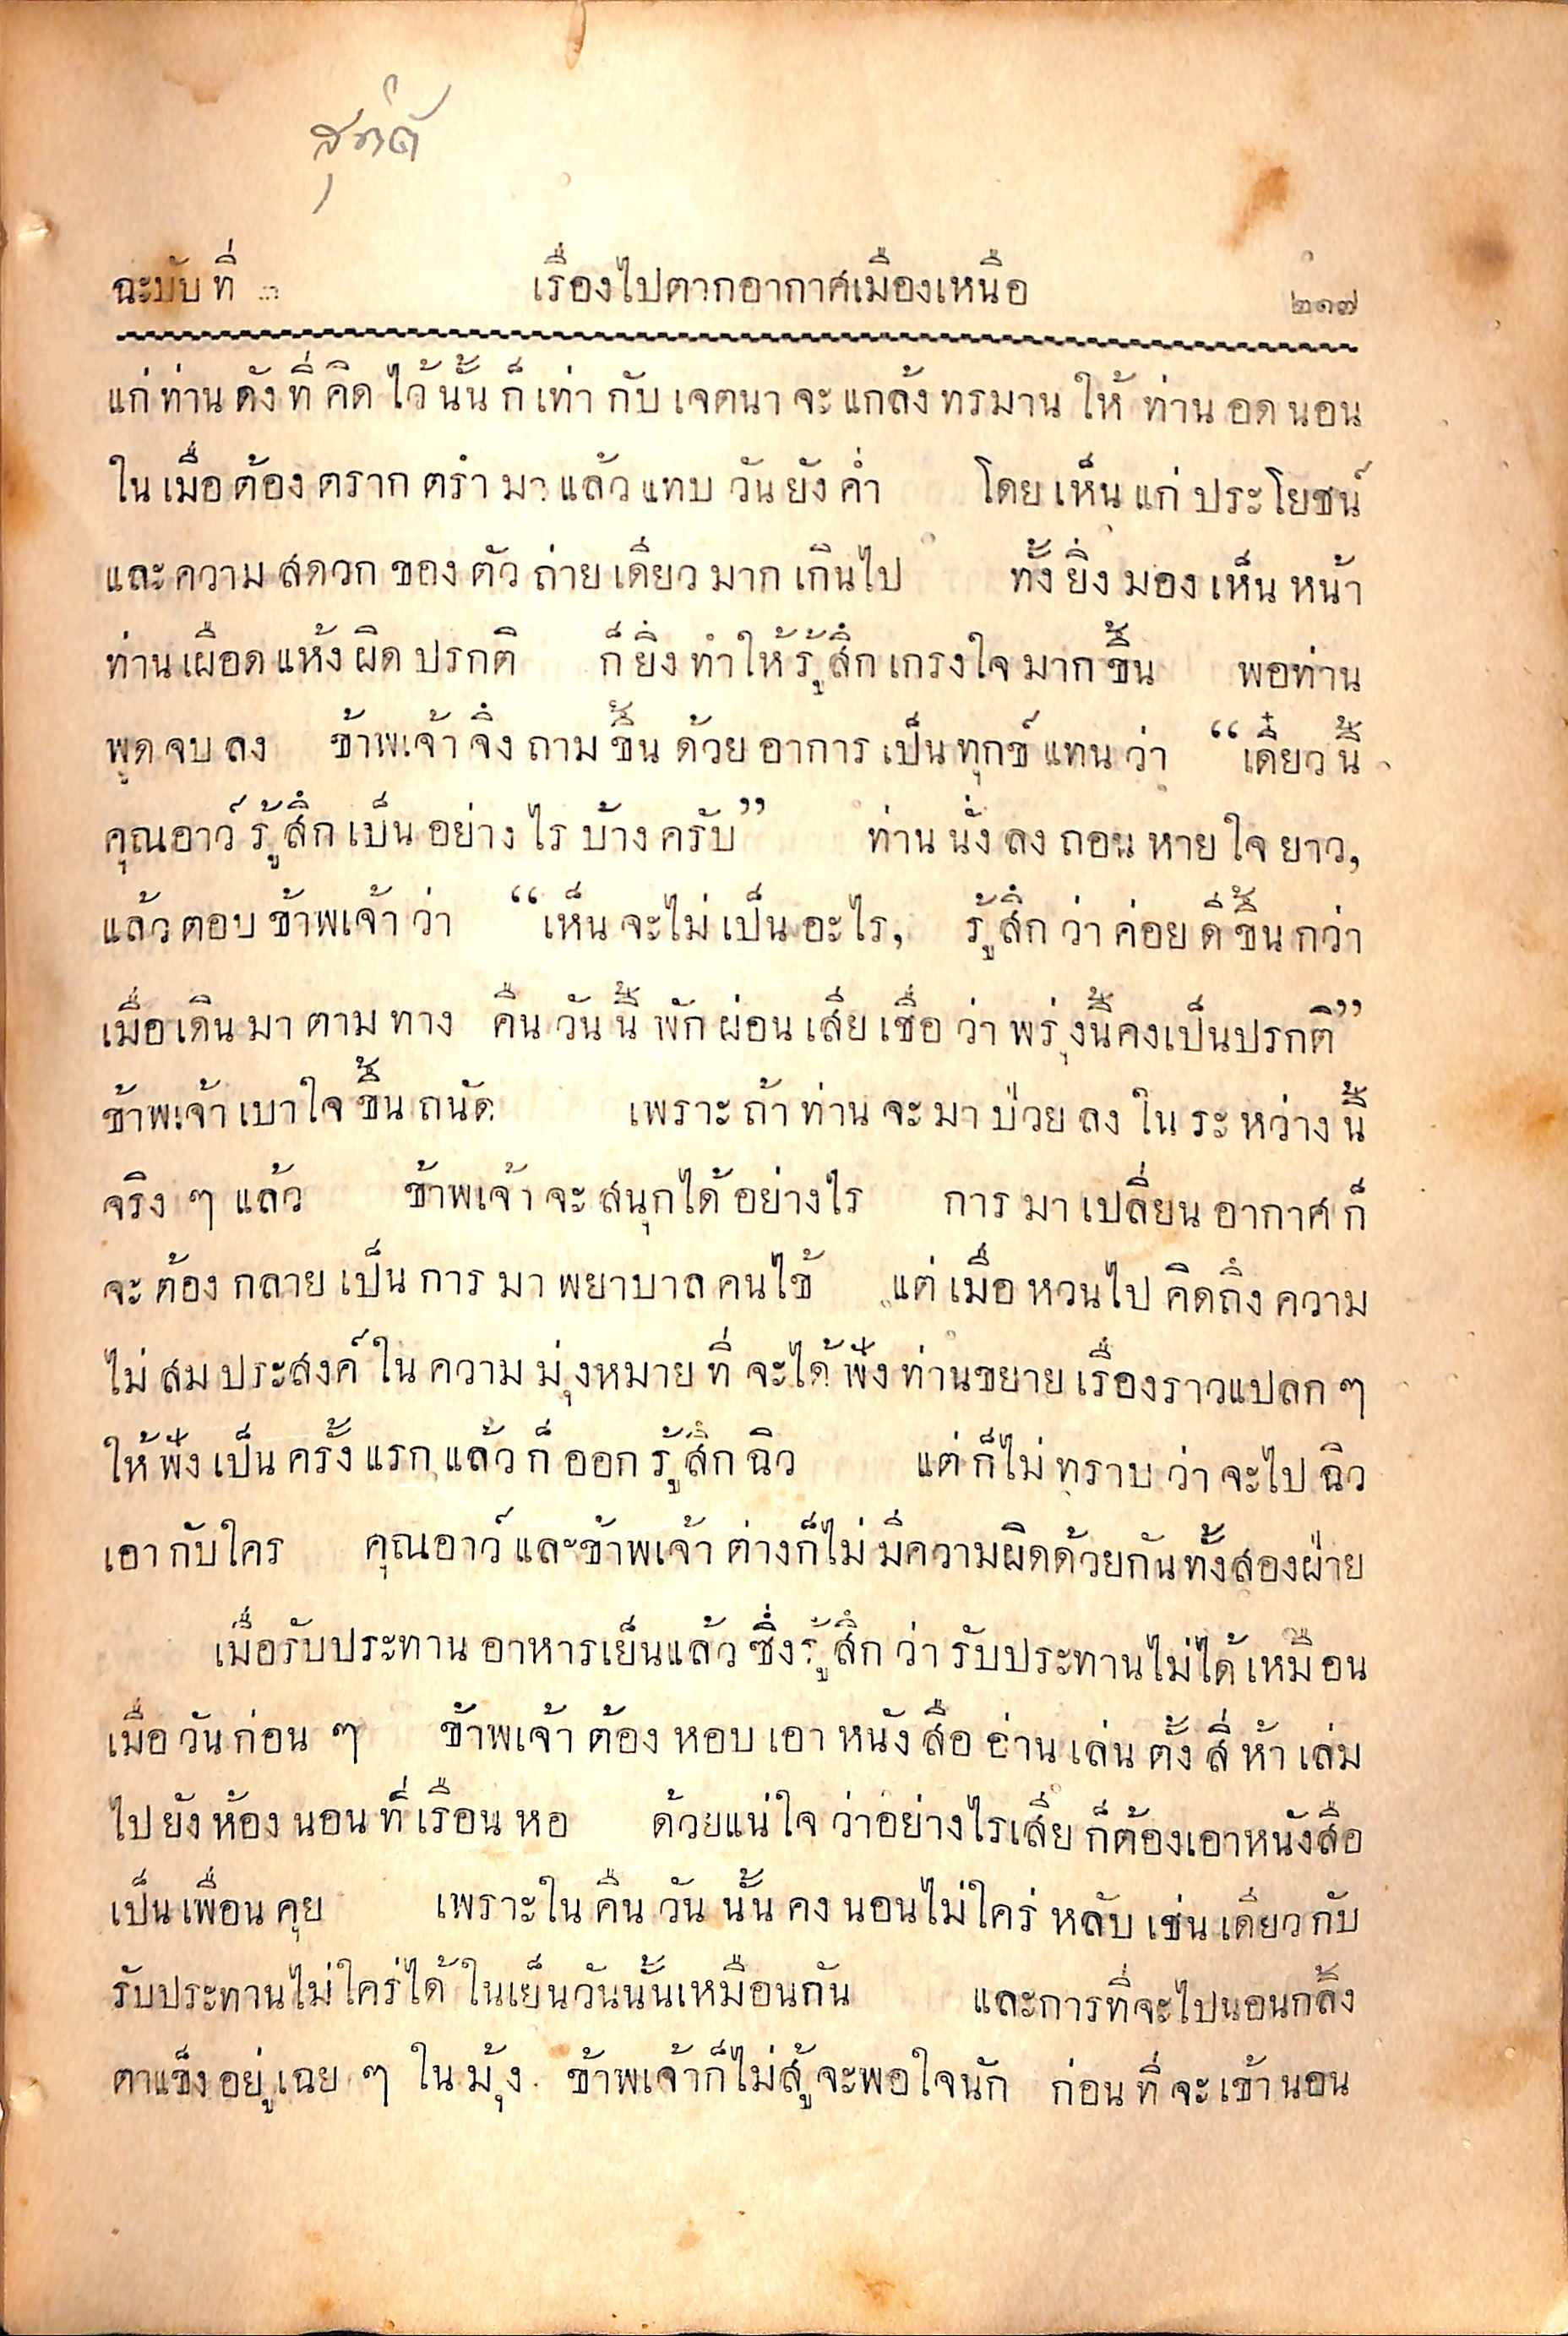 ฉะบับที่ ๓ เรื่องไปตากอากาศเมืองเหนือ ๒๑๗
แก่ท่านดังที่คิดไว้นั้นก็เท่ากับเจตนาจะแกล้งทรมานให้ท่านอดนอน
ในเมื่อต้องตรากตรำมาแล้วแทบวันยังค่ำ โดยเห็นแก่ประโยชน์
และความสดวกของตัวถ่ายเดียวมากเกินไป ทั้งยิ่งมองเห็นหน้า
ท่านเผือดแห้งผิดปรกติ ก็ยิ่งทำให้รู้สึกเกรงใจมากขึ้น พอท่าน
พูดจบลง ข้าพเจ้าจึ่งถามขึ้นด้วยอาการเป็นทุกข์แทนว่า “เดี๋ยวนี้
คุณอาว์รู้สึกเป็นอย่างไรบ้างครับ” ท่านนั่งลงถอนหายใจยาว,
แล้วตอบข้าพเจ้าว่า “เห็นจะไม่เป็นอะไร, รู้สึกว่าค่อยดีขึ้นกว่า
เมื่อเดินมาตามทาง คืนวันนี้พักผ่อนเสียเชื่อว่าพรุ่งนี้คงเป็นปรกติ”
ข้าพเจ้าเบาใจขึ้นถนัด เพราะถ้าท่านจะมาป่วยลงในระหว่างนี้
จริง ๆ แล้ว ข้าพเจ้าจะสนุกได้อย่างไร การมาเปลี่ยนอากาศก็
จะต้องกลายเป็นการมาพยาบาลคนไข้ แต่เมื่อหวนไปคิดถึงความ
ไม่สมประสงค์ในความมุ่งหมายที่จะได้ฟังท่านขยายเรื่องราวแปลก ๆ
ให้ฟังเป็นครั้งแรกแล้วก็ออกรู้สึกฉิว แต่ก็ไม่ทราบว่าจะไปฉิว
เอากับใคร คุณอาว์และข้าพเจ้าต่างก็ไม่มีความผิดด้วยกันทั้งสองฝ่าย
เมื่อรับประทานอาหารเย็นแล้วซึ่งรู้สึกว่ารับประทานไม่ได้เหมือน
เมื่อวันก่อน ๆ ข้าพเจ้าต้องหอบเอาหนังสืออ่านเล่นตั้งสี่ห้าเล่ม
ไปยังห้องนอนที่เรือนหอ ด้วยแน่ใจว่าอย่างไรเสียก็ต้องเอาหนังสือ
เป็นเพื่อนคุย เพราะในคืนวันนั้นคงนอนไม่ใคร่หลับเช่นเดียวกับ
รับประทานไม่ใคร่ได้ในเย็นวันนั้นเหมือนกัน และการที่จะไปนอนกลิ้ง
ตาแข็งอยู่เฉย ๆ ในมุ้ง ข้าพเจ้าก็ไม่สู้จะพอใจนัก ก่อนที่จะเข้านอน